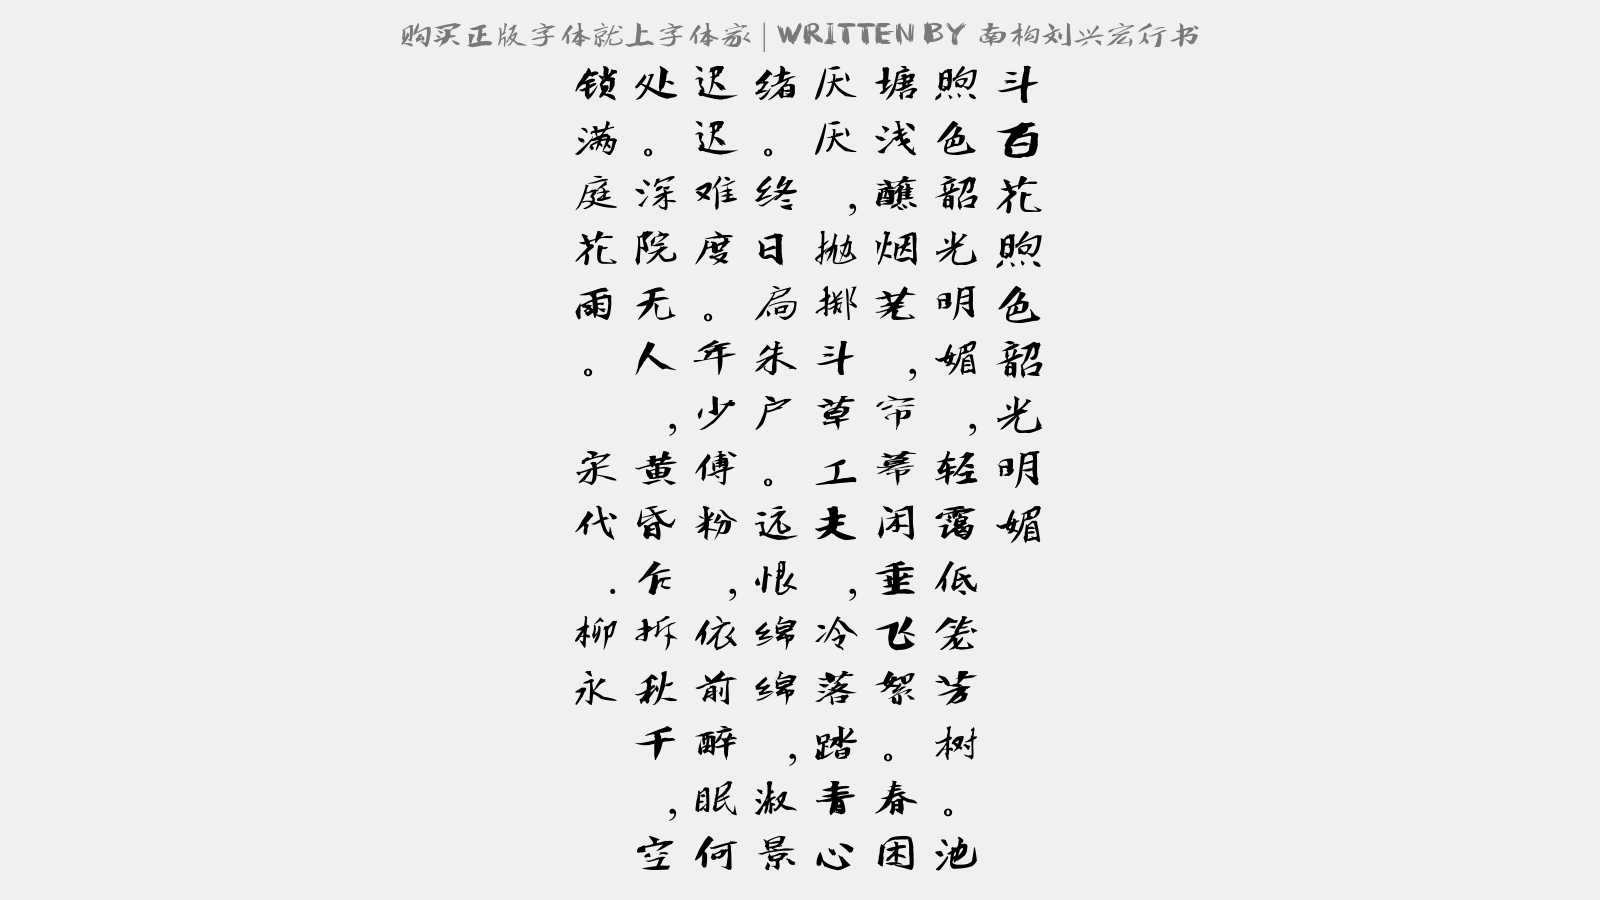 购买正版字体就上字体家 | WRITTEN BY 南构刘兴宏行书
斗百花煦色韶光明媚
煦色韶光明媚,轻霭低笼芳树。池
塘浅蘸烟芜,帘幕闲垂飞絮。春困
厌厌,抛掷斗草工夫,冷落踏青心
绪。终日扃朱户。远恨绵绵,淑景
迟迟难度。年少傅粉,依前醉眠何
处。深院无人,黄昏乍拆秋千,空
锁满庭花雨。
宋代.柳永